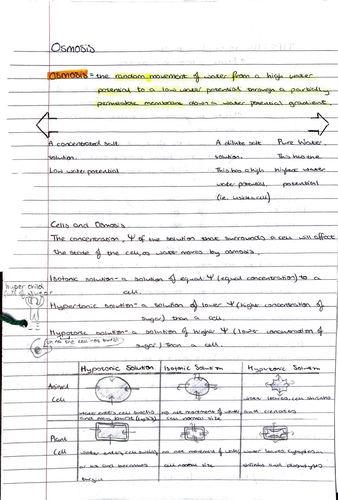 Osmosis
Osmosis = the random movement of water from a high water
potential to a low water potential through a partially
permeable membrane down a water potential gradient
A concentrated salt A dilute salt Pure Water
solution. solution. This has the
Low water potential This has a high highest water
water potential, potential
(i.e. inside a cell)
Cells and Osmosis
The concentration, Ψ of the solution that surrounds a cell will affect
the state of the cell, as water moves by osmosis.
Isotonic solution = a solution of equal Ψ (equal concentration) to a
cell.
hyper child
Hypertonic solution = a solution of lower Ψ (higher concentration of
sugar) than a cell.
Hypotonic solution = a solution of higher Ψ (lower concentration of
sugar) than a cell.
Hypotonic Solution Isotonic Solution Hypertonic Solution
Animal
Cell
water enters, cell swells no net movement of water, water leaves, cell shrinks
and may burst (lysis) cell normal size and crenates
Plant
Cell water enters, cell swells no net movement of water water leaves cytoplasm
and becomes cell normal size shrinks and plasmolysis
turgid